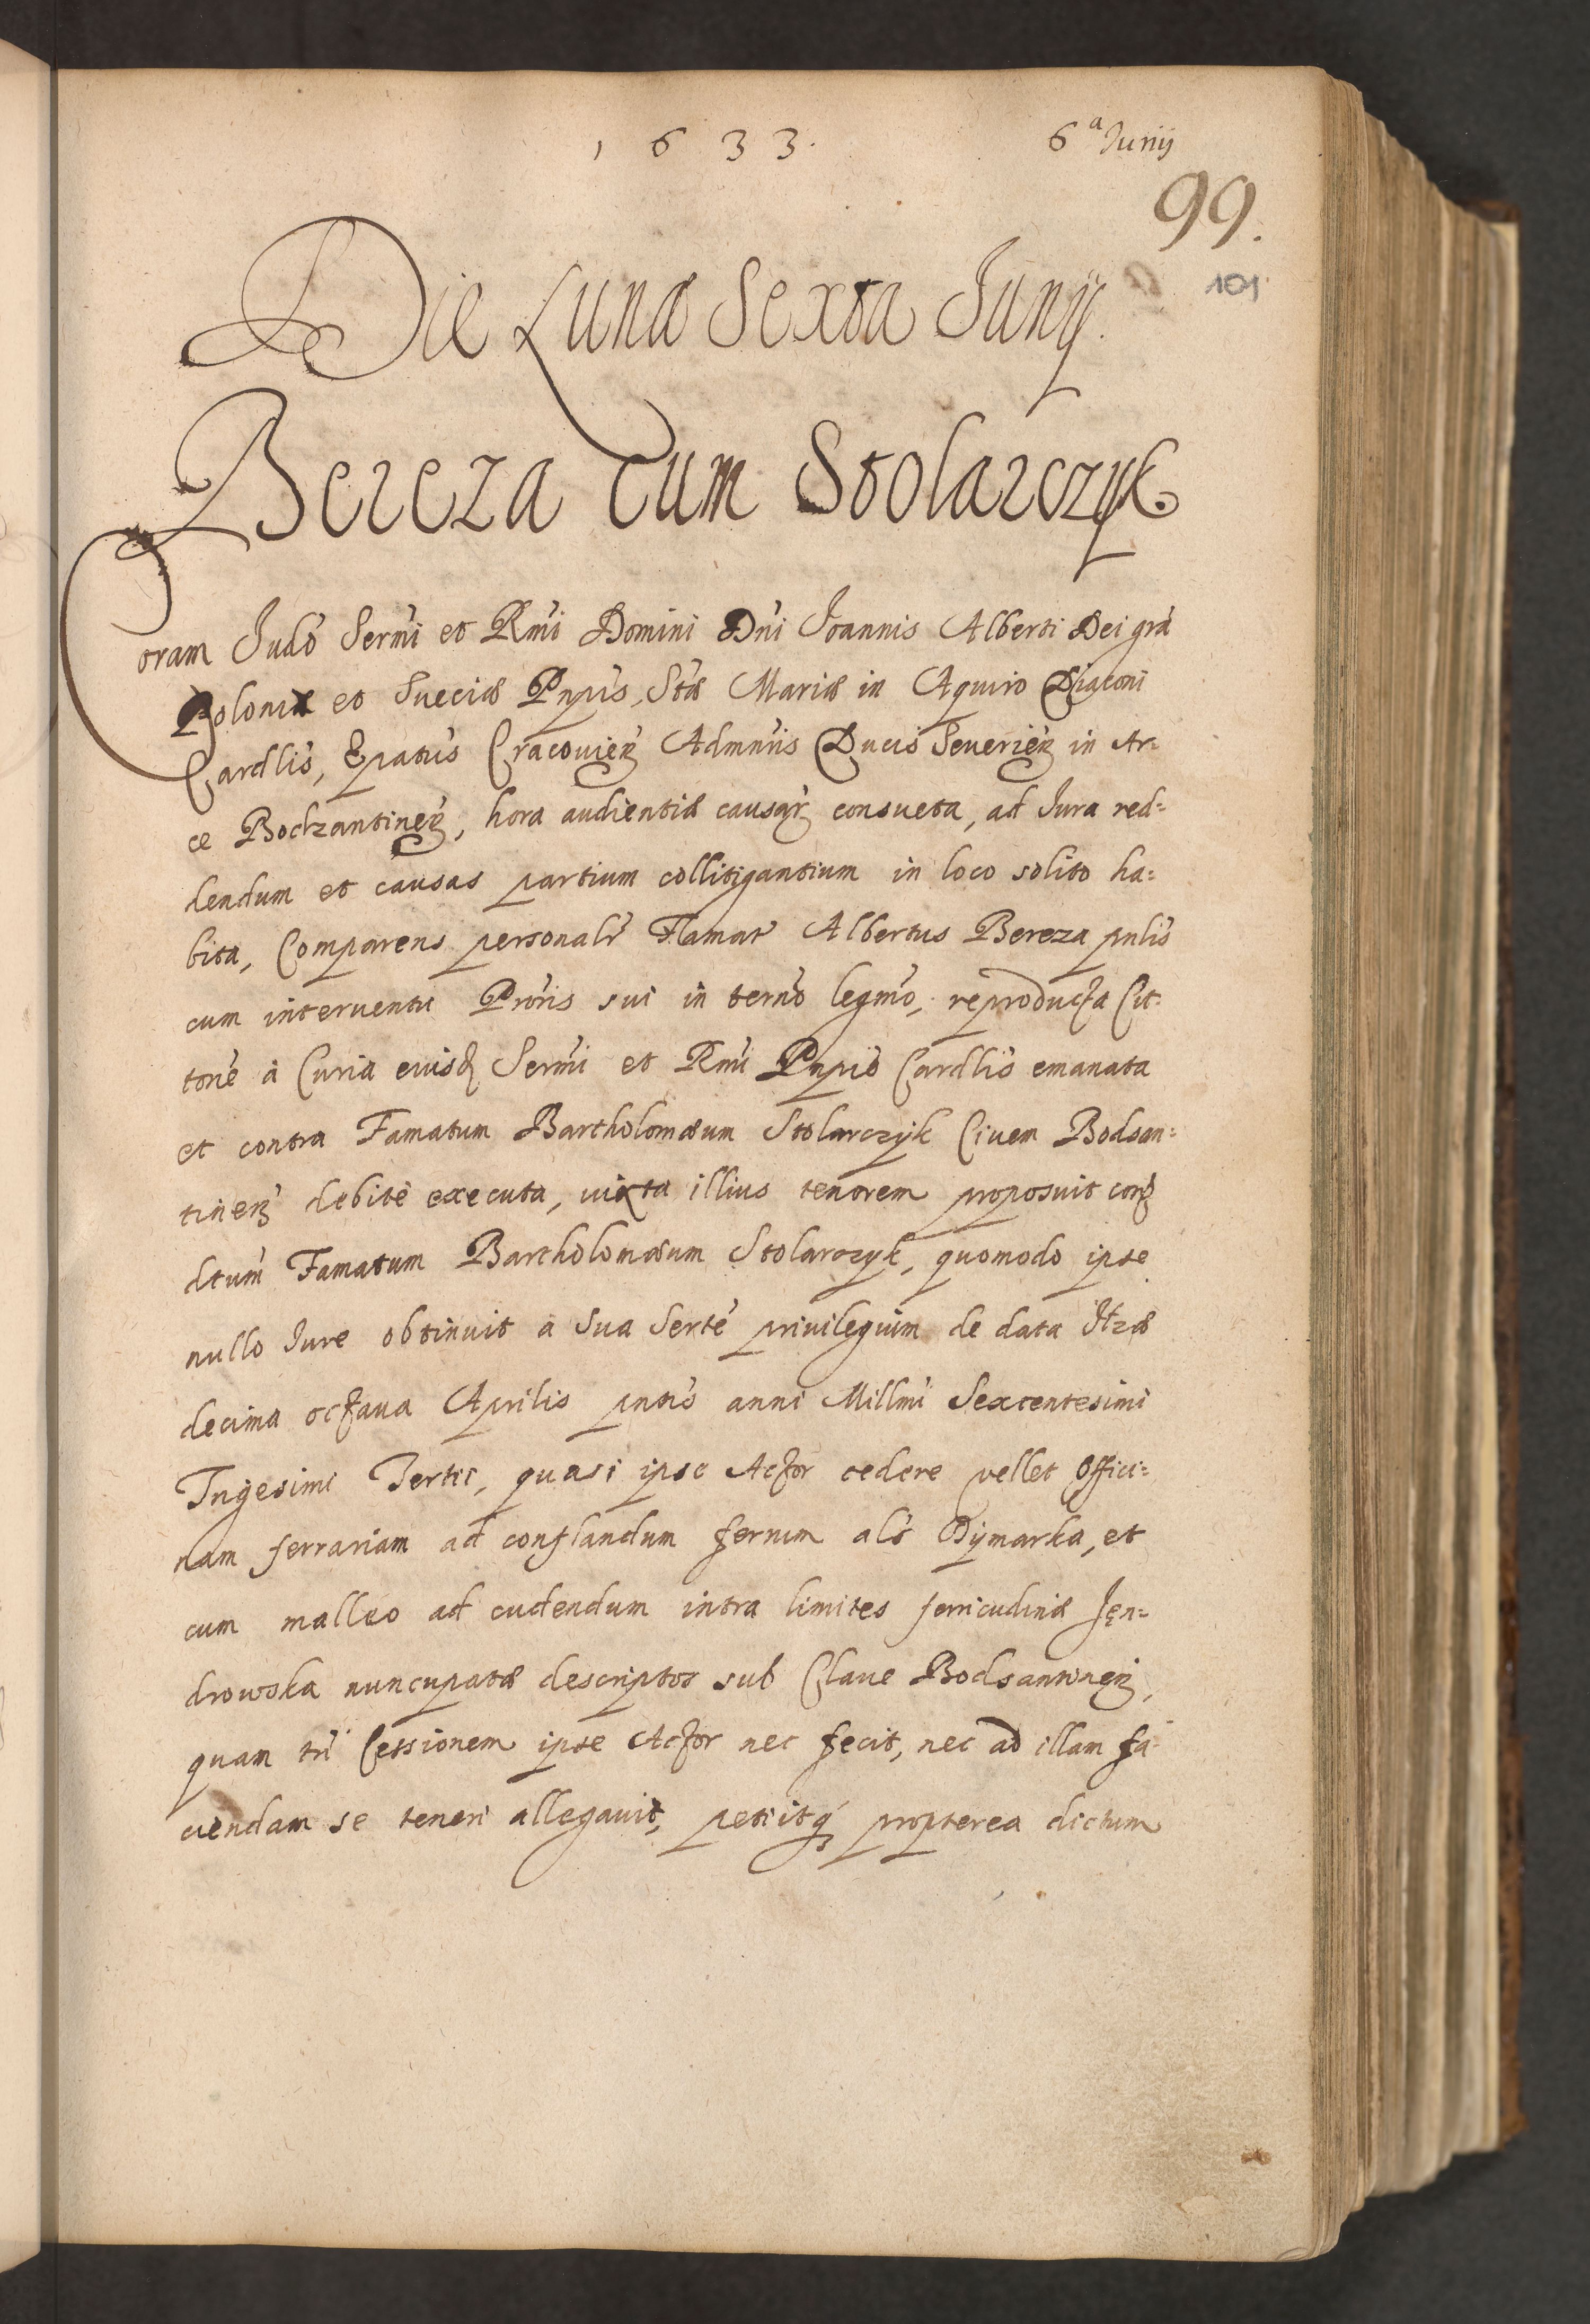 1633.
6ª Junij
99.
101
Die Lunæ Sexta Junij.
Bereza cum Stolarczyk.
Coram Judo Sermi et Rmi Domini Dni Joannis Alberti Dei gra
Poloniæ et Sueciæ Pnpis, Stæ Mariæ in Aquiro Diaconi
Cardlis, Epatus Cracovien Admnris Ducis Severien in Ar=
ce Bodzantinen, hora audientiæ causar consueta, ad Jura red=
dendum et causas partium collitigantium in loco solito ha=
bita, Comparens personalr Famat Albertus Bereza pnlis
cum interventu Proris sui in terno legmo, reproducta Cit=
tone à Curia eiusd Sermi et Rmi Pnpis Cardlis emanata
et contra Famatum Bartholomæum Stolarczyk Civem Bodsan=
tinen debitè executa, iuxta illius tenorem proposuit cong
dtum Famatum Bartholomæum Stolarczyk, quomodo ipse
nullo Jure obtinuit à Sua Serte privilegium de data Jlzæ
decima octava Aprilis pntis anni Millmi Sexcentesimi
Trigesimi Tertii, quasi ipse Actor cedere vellet Offici=
nam ferrariam ad conflandum ferrum als Dymarka, et
cum malleo ad cudendum intra limites ferricudinæ Jęn=
drowska nuncupatæ descriptos sub Clave Bodsantinen,
quam tn Cessionem ipse Actor nec fecit, nec ad illam fa=
ciendam se teneri allegavit, petiitq propterea dictum